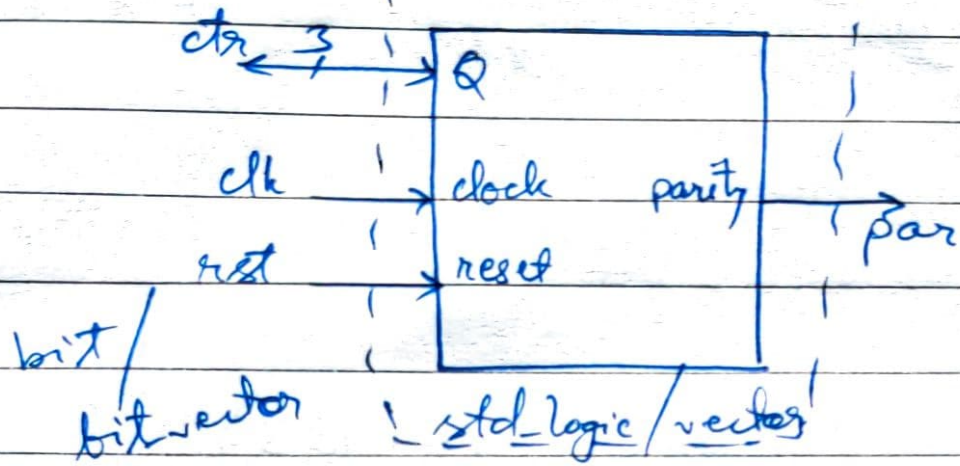 ctr 3 Q
clk clock parity
par
rst reset
bit/
bit_vector
std_logic/vector